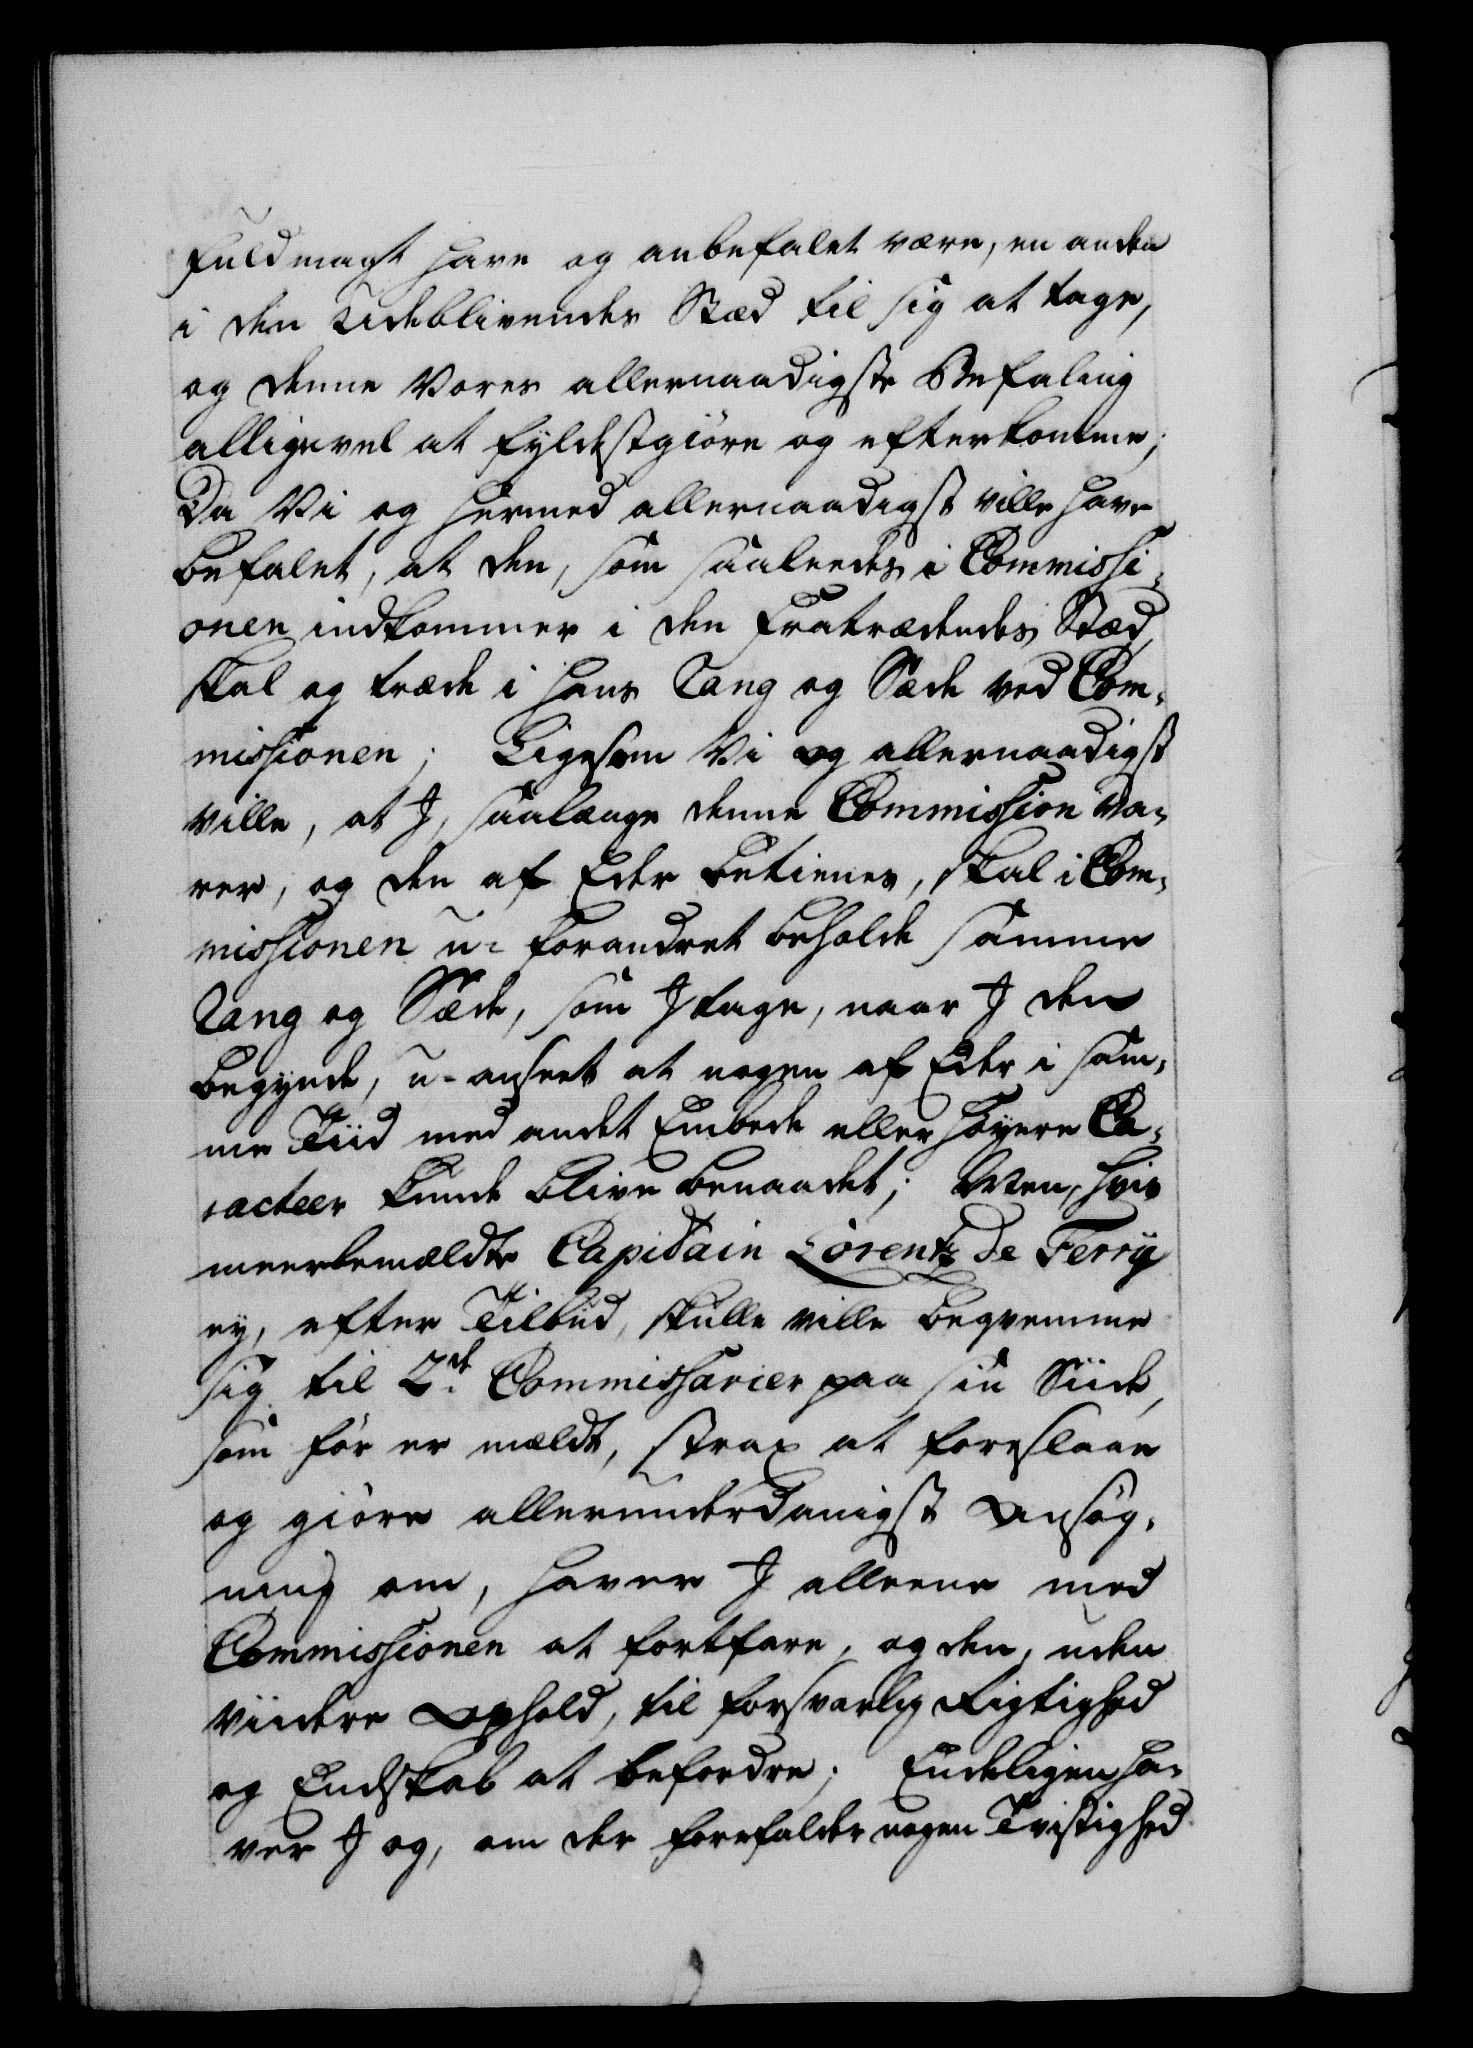 Fuldmagt have og anbefalet være, en anden
i den Udeblivendes Stæd til sig at tage,
og denne Vores allernaadigste Befaling
alligevel at fyldestgiöre og efterkomme;
Da Vi og hermed allernaadigst ville have
befalet, at den, som saaleedes i Commissi-
onen indkommer i den Fratrædendes Stæd,
skal og træde i hans Rang og Sæde ved Com-
missionen; Ligesom Vi og allernaadigst
ville, at I, saalænge denne Commission va-
rer, og den af Eder betienes, skal i Com-
missionen u-forandret beholde samme
Rang og Sæde, som I tage, naar I den
begynde, u-anseet at nogen af Eder i sam-
me Tiid med andet Embede eller høyere Ca-
racteer kunde blive benaadet; Men, hvis
meerbemældte Capitain Lorentz de Ferry
ey, efter Tilbud, skulle ville beqvemme
sig til 2de Commissarier paa sin Siide,
som før er mældt, strax at foreslaae
og giöre allerunderdanigst Ansög-
ning om, haver I alleene med
Commissionen at fortfare, og den, uden
viidere Ophold, til forsvarlig Rigtighed
og Endskab at befordre; Endeligen ha-
ver I og, om der forefalder nogen Tvistighed